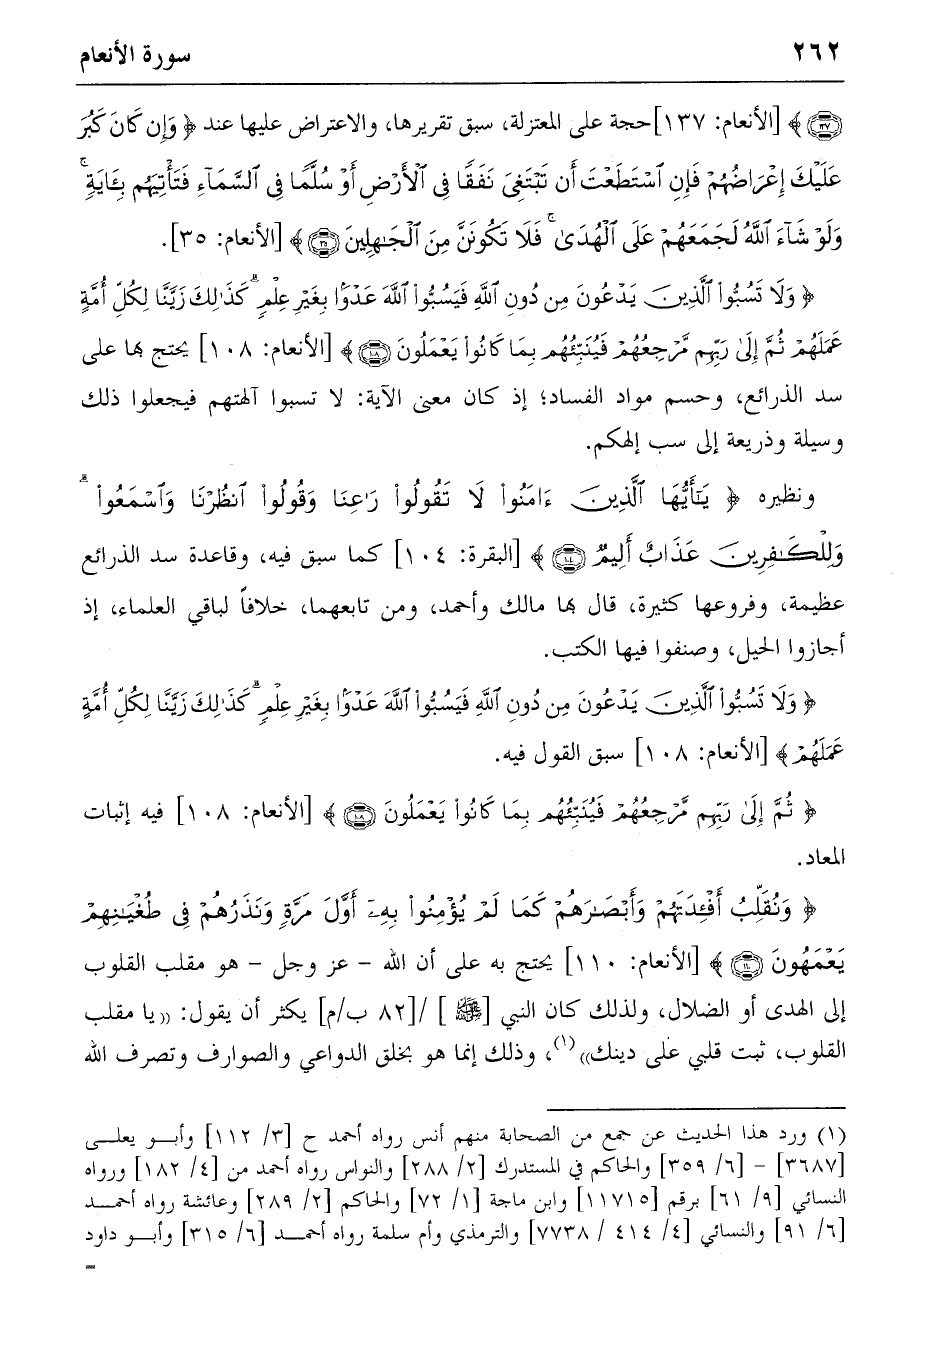 ٢٦٢ سورة الأنعام
﴿١٣٧﴾ [الأنعام: ١٣٧] حجة على المعتزلة، سبق تقريرها، والاعتراض عليها عند ﴿ وَإِن كَانَ كَبُرَ
عَلَيْكَ إِعْرَاضُهُمْ فَإِنِ ٱسْتَطَعْتَ أَن تَبْتَغِىَ نَفَقًا فِى ٱلْأَرْضِ أَوْ سُلَّمًا فِى ٱلسَّمَآءِ فَتَأْتِيَهُم بِـَٔايَةٍ ۚ
وَلَوْ شَآءَ ٱللَّهُ لَجَمَعَهُمْ عَلَى ٱلْهُدَىٰ ۚ فَلَا تَكُونَنَّ مِنَ ٱلْجَـٰهِلِينَ ﴿٣٥﴾ [الأنعام: ٣٥].
﴿ وَلَا تَسُبُّوا۟ ٱلَّذِينَ يَدْعُونَ مِن دُونِ ٱللَّهِ فَيَسُبُّوا۟ ٱللَّهَ عَدْوًۢا بِغَيْرِ عِلْمٍ ۗ كَذَٰلِكَ زَيَّنَّا لِكُلِّ أُمَّةٍ
عَمَلَهُمْ ثُمَّ إِلَىٰ رَبِّهِم مَّرْجِعُهُمْ فَيُنَبِّئُهُم بِمَا كَانُوا۟ يَعْمَلُونَ ﴿١٠٨﴾ [الأنعام: ١٠٨] يحتج بها على
سد الذرائع، وحسم مواد الفساد؛ إذ كان معنى الآية: لا تسبوا آلهتهم فيجعلوا ذلك
وسيلة وذريعة إلى سب إلهكم.
ونظيره ﴿ يَـٰٓأَيُّهَا ٱلَّذِينَ ءَامَنُوا۟ لَا تَقُولُوا۟ رَٰعِنَا وَقُولُوا۟ ٱنظُرْنَا وَٱسْمَعُوا۟ ۗ
وَلِلْكَـٰفِرِينَ عَذَابٌ أَلِيمٌ ﴿١٠٤﴾ [البقرة: ١٠٤] كما سبق فيه، وقاعدة سد الذرائع
عظيمة، وفروعها كثيرة، قال بها مالك وأحمد، ومن تابعهما، خلافاً لباقي العلماء، إذ
أجازوا الحيل، وصنفوا فيها الكتب.
﴿ وَلَا تَسُبُّوا۟ ٱلَّذِينَ يَدْعُونَ مِن دُونِ ٱللَّهِ فَيَسُبُّوا۟ ٱللَّهَ عَدْوًۢا بِغَيْرِ عِلْمٍ ۗ كَذَٰلِكَ زَيَّنَّا لِكُلِّ أُمَّةٍ
عَمَلَهُمْ ﴾ [الأنعام: ١٠٨] سبق القول فيه.
﴿ ثُمَّ إِلَىٰ رَبِّهِم مَّرْجِعُهُمْ فَيُنَبِّئُهُم بِمَا كَانُوا۟ يَعْمَلُونَ ﴿١٠٨﴾ [الأنعام: ١٠٨] فيه إثبات
المعاد.
﴿ وَنُقَلِّبُ أَفْـِٔدَتَهُمْ وَأَبْصَـٰرَهُمْ كَمَا لَمْ يُؤْمِنُوا۟ بِهِۦٓ أَوَّلَ مَرَّةٍ وَنَذَرُهُمْ فِى طُغْيَـٰنِهِمْ
يَعْمَهُونَ ﴿١١٠﴾ [الأنعام: ١١٠] يحتج به على أن الله - عز وجل - هو مقلب القلوب
إلى الهدى أو الضلال، ولذلك كان النبي [ﷺ] /[٨٢ ب/م] يكثر أن يقول: ((يا مقلب
القلوب، ثبت قلبي على دينك))(١)، وذلك إنما هو بخلق الدواعي والصوارف وتصرف الله
(١) ورد هذا الحديث عن جمع من الصحابة منهم أنس رواه أحمد ح [٣/ ١١٢] وأبو يعلى
[٣٦٨٧] - [٦/ ٣٥٩] والحاكم في المستدرك [٢/ ٢٨٨] والنواس رواه أحمد من [٤/ ١٨٢] ورواه
النسائي [٩/ ٦١] برقم [١١٧١٥] وابن ماجة [١/ ٧٢] والحاكم [٢/ ٢٨٩] وعائشة رواه أحمد
[٦/ ٩١] والنسائي [٤/ ٤١٤ / ٧٧٣٨] والترمذي وأم سلمة رواه أحمد [٦/ ٣١٥] وأبو داود
=